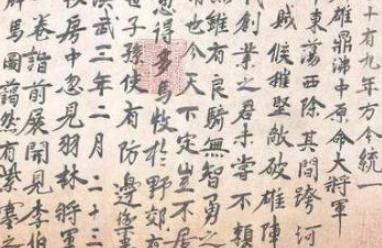 十有九年方今統一
雄鼎沸中原命大將軍
東蕩西除其間跨河
賊候摧堅敵破雄陣
代創業之君未嘗不賴
雖有良騎無智勇之
也今天下定豈不居
思得多馬牧於野郊有
子孫使有防邊禦
洪武三年二月二十三
板房中忽見羽林將軍
一卷詣前展開見李伯
群馬圖藹然有紫塞之